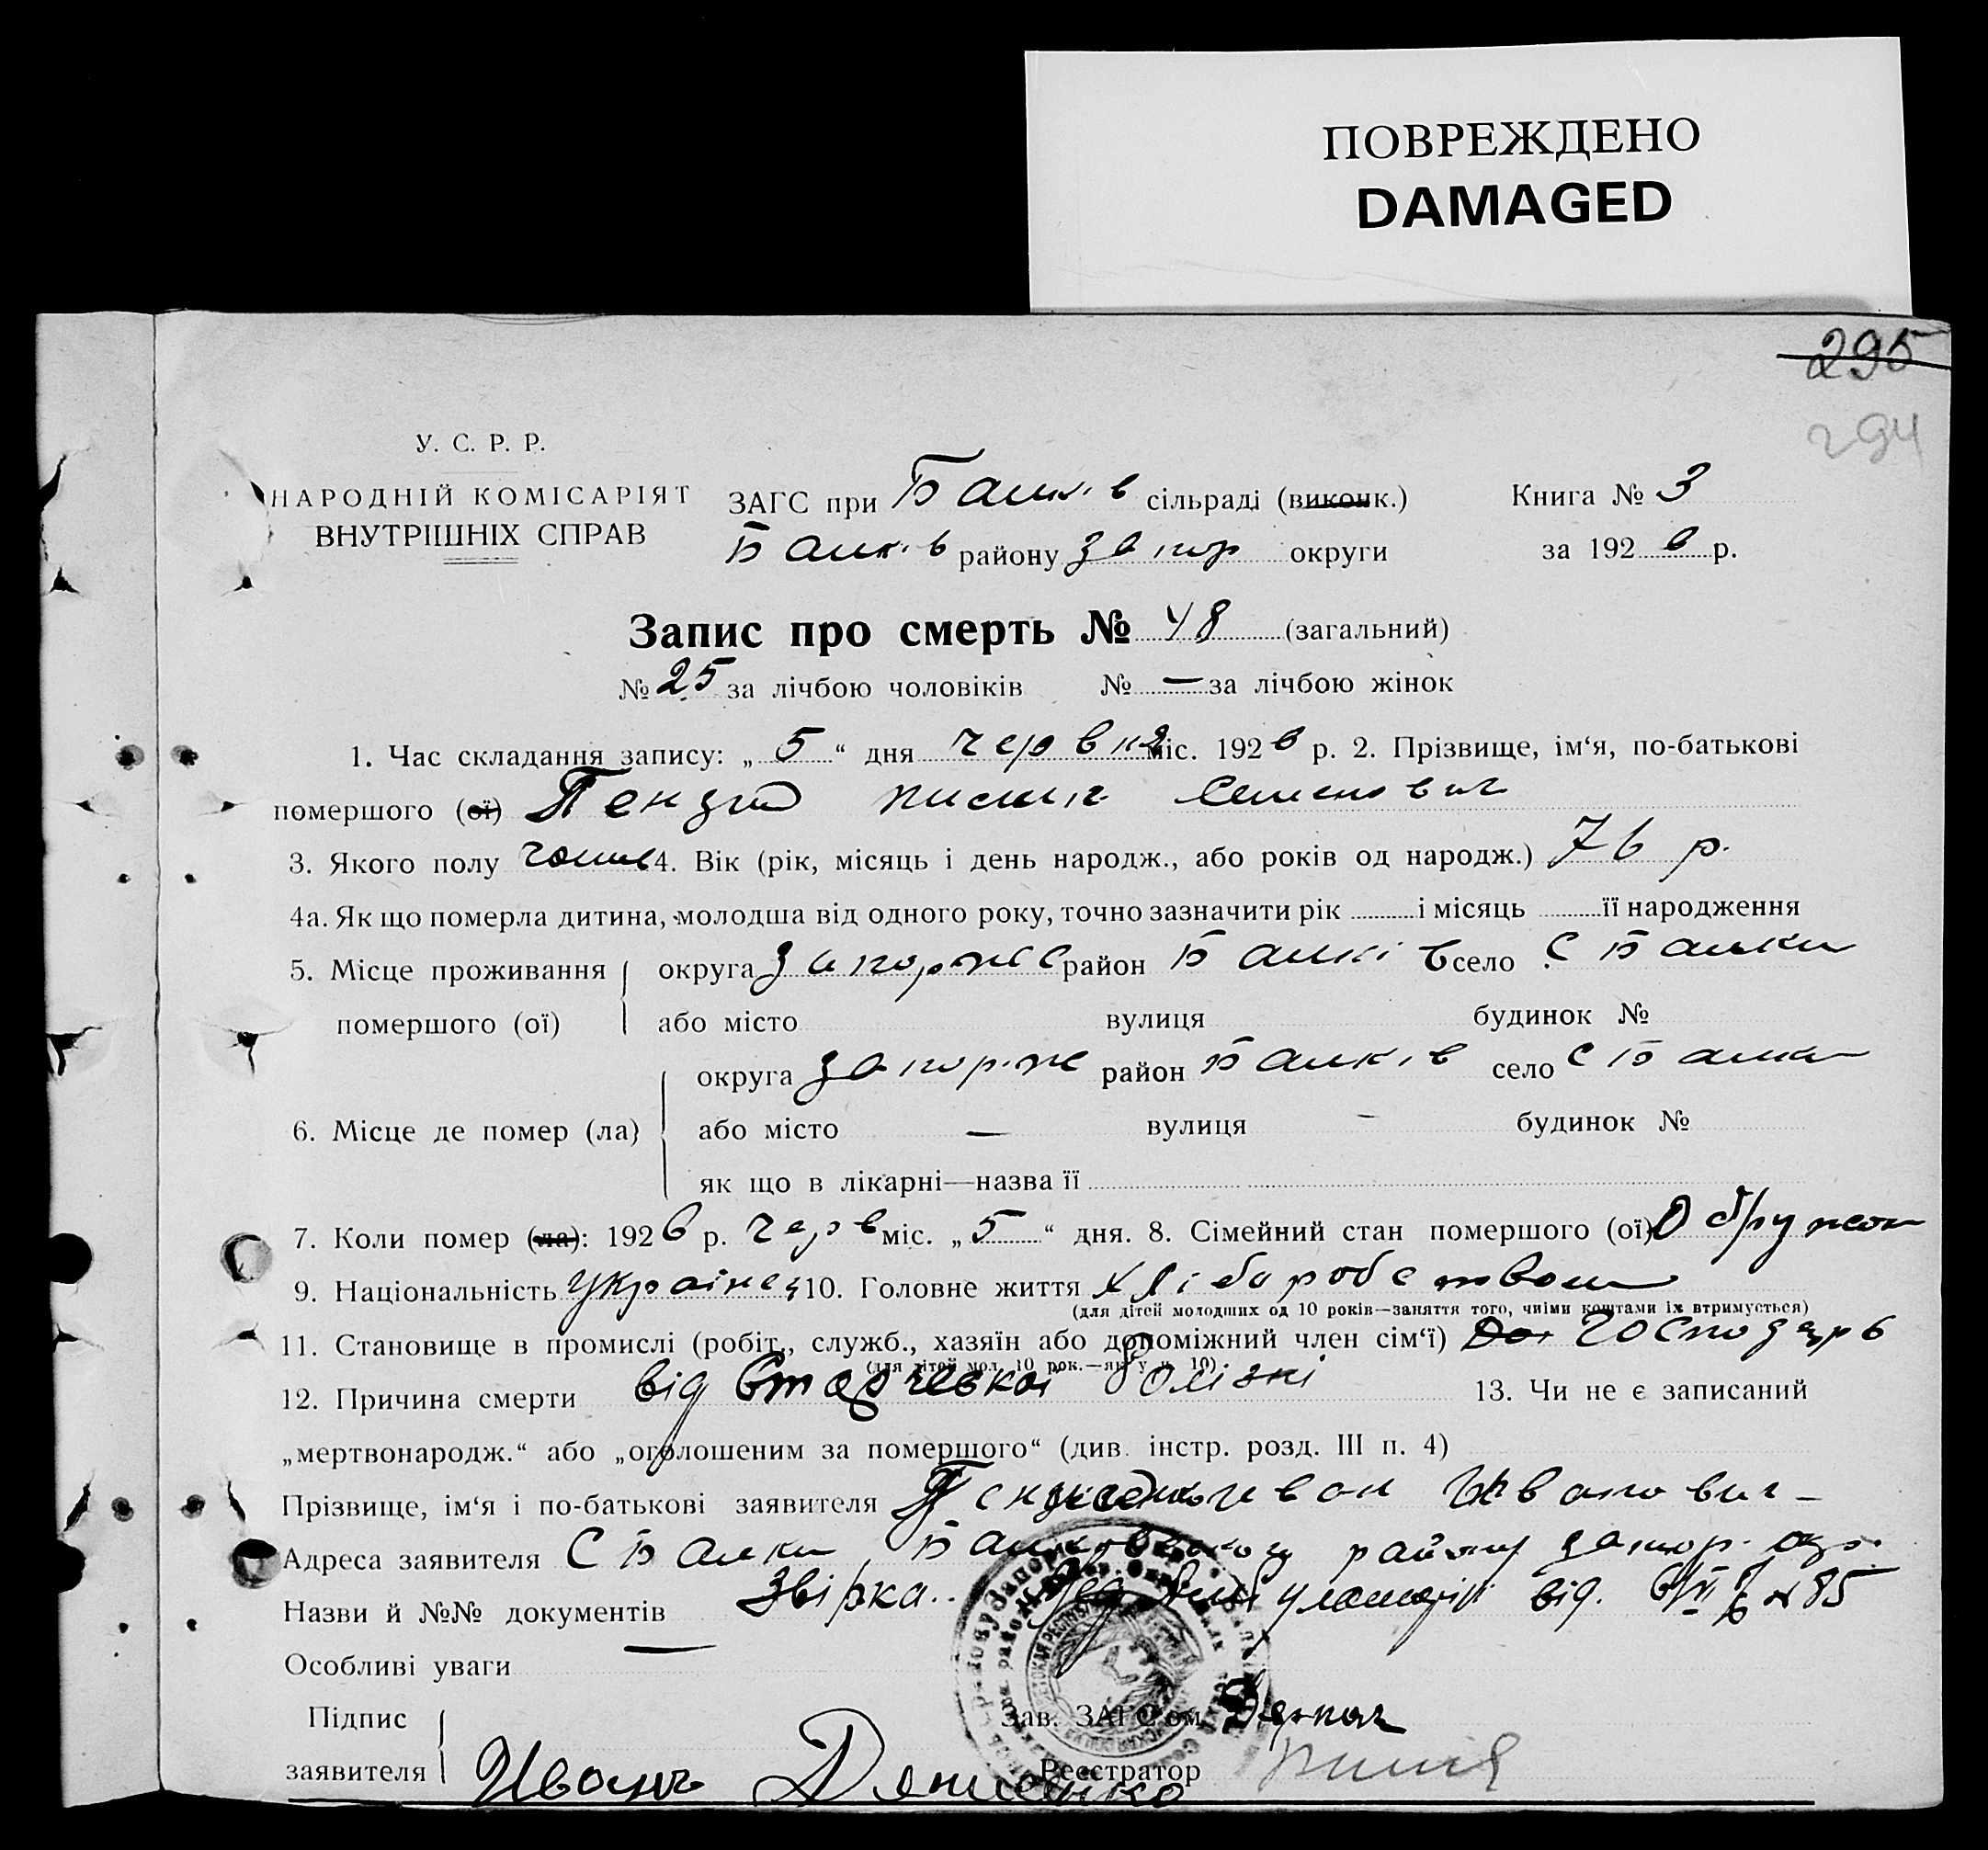 ПОВРЕЖДЕНО
DAMAGED
295
294
У. С. Р. Р.
НАРОДНІЙ КОМІСАРІЯТ
ВНУТРІШНІХ СПРАВ
ЗАГС при Балків сільраді (виконк.)
Балків району Запор округи
Книга № 3
за 1926 р.
Запис про смерть № 48 (загальний)
№ 25 за лічбою чоловіків № — за лічбою жінок
1. Час складання запису: „ 5 “ дня червня міс. 1926 р. 2. Прізвище, ім‘я, по-батькові
помершого (ої) Семенович
3. Якого полу чолов 4. Вік (рік, місяць і день народж., або років од народж.) 76 р.
4а. Як що померла дитина, молодша від одного року, точно зазначити рік і місяць її народження
5. Місце проживання округа Запорже район Балків село С Балки
помершого (ої) або місто вулиця будинок №
округа Запорже район Балків село С Балки
6. Місце де помер (ла) або місто — вулиця — будинок №
як що в лікарні—назва її
7. Коли помер (ла): 1926 р. черв міс. „ 5 “ дня. 8. Сімейний стан помершого (ої) Одружон
9. Національність Украінец 10. Головне життя Хліборобством
(для дітей молодших од 10 років—заняття того, чиїми коштами їх втримується)
11. Становище в промислі (робіт., служб., хазяїн або допоміжний член сім‘ї) Господарь
(для дітей мол. 10 рок.—як у п. 10)
12. Причина смерти від Старческоі болізні 13. Чи не є записаний
„мертвонародж.“ або „оголошеним за помершого“ (див. інстр. розд. III п. 4)
Прізвище, ім‘я і по-батькові заявителя Иван Иванович
Адреса заявителя С Балки Балковского району Запор. окр.
Назви й №№ документів від. № 85
Особливі уваги —
Підпис
заявителя Иванъ
Зав. ЗАГС‘ом Деркач
Реєстратор